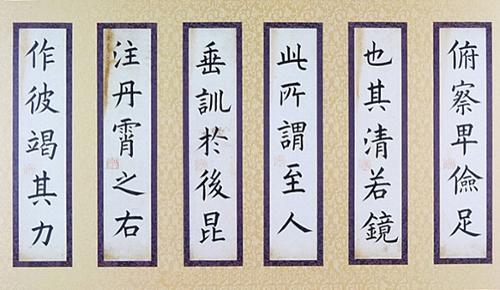 俯察卑儉足
也其清若鏡
此所謂至人
垂訓於後昆
注丹霄之右
作彼竭其力